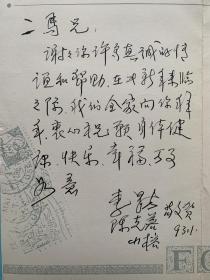 二马兄：
谢谢你许多真诚的情
谊和帮助，在此新年来临
之际，我们全家向你拜
年，衷心祝愿身体健
康、快乐、幸福、万事
如意
李
陈
敬贺
93.1.